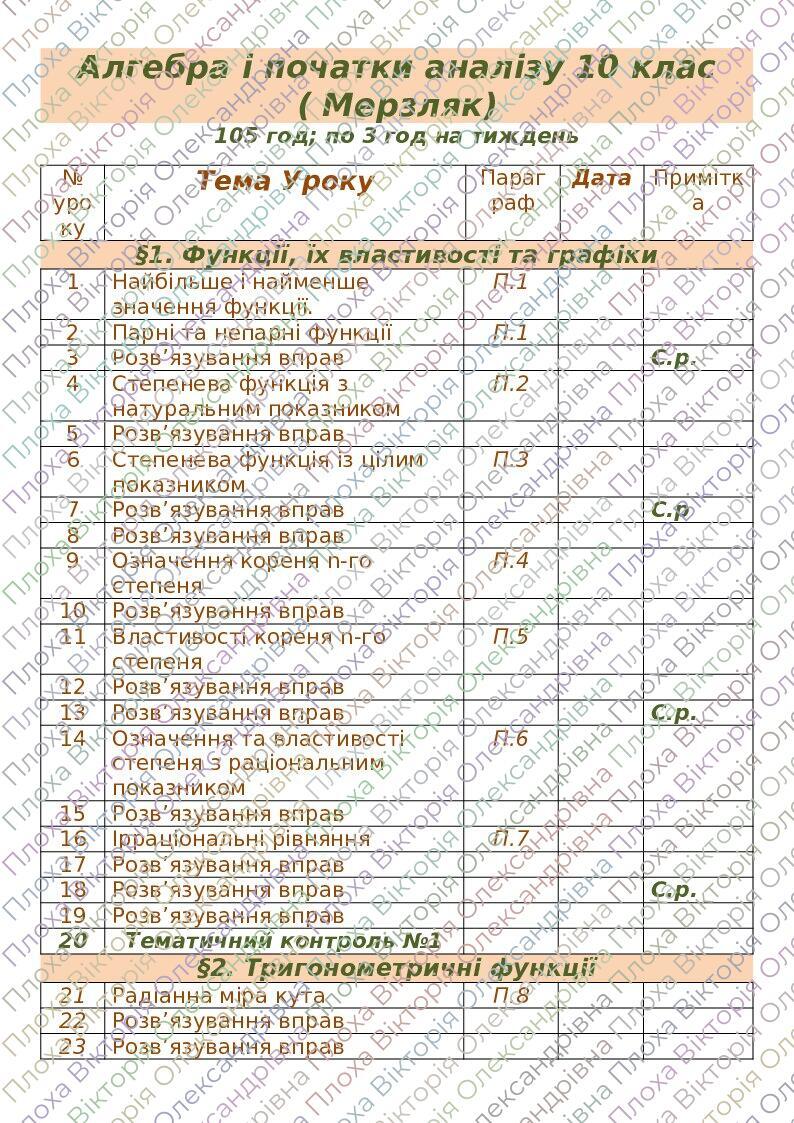 Алгебра і початки аналізу 10 клас
( Мерзляк)
105 год; по 3 год на тиждень
№ уроку Тема Уроку Параграф Дата Примітка
§1. Функції, їх властивості та графіки
1 Найбільше і найменше П.1
значення функції.
2 Парні та непарні функції П.1
3 Розв’язування вправ С.р.
4 Степенева функція з П.2
натуральним показником
5 Розв’язування вправ
6 Степенева функція із цілим П.3
показником
7 Розв’язування вправ С.р
8 Розв’язування вправ
9 Означення кореня n-го П.4
степеня
10 Розв’язування вправ
11 Властивості кореня n-го П.5
степеня
12 Розв’язування вправ
13 Розв’язування вправ С.р.
14 Означення та властивості П.6
степеня з раціональним
показником
15 Розв’язування вправ
16 Ірраціональні рівняння П.7
17 Розв’язування вправ
18 Розв’язування вправ С.р.
19 Розв’язування вправ
20 Тематичний контроль №1
§2. Тригонометричні функції
21 Радіанна міра кута П 8
22 Розв’язування вправ
23 Розв’язування вправ
Плоха Вікторія Олександрівна